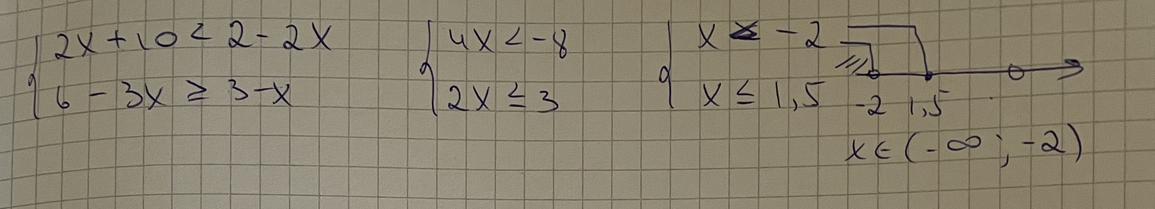 2x + 10 < 2 - 2x
6 - 3x ≥ 3 - x
4x < -8
2x ≤ 3
x < -2
x ≤ 1,5
-2 1,5
x ∈ (-∞ ; -2)